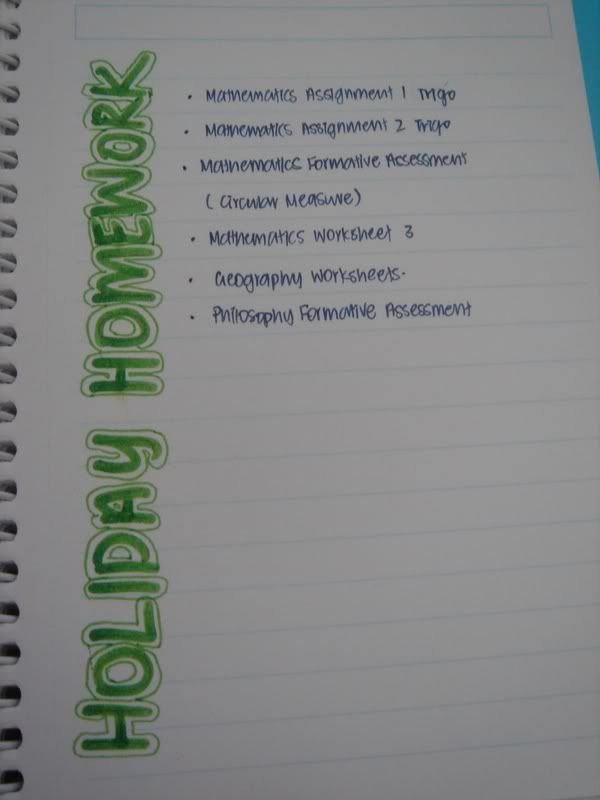 HOLIDAY HOMEWORK
• Mathematics Assignment 1 Trigo
• Mathematics Assignment 2 Trigo
• Mathematics Formative Assessment
(Circular Measure)
• Mathematics Worksheet 3
• Geography Worksheets.
• Philosophy Formative Assessment